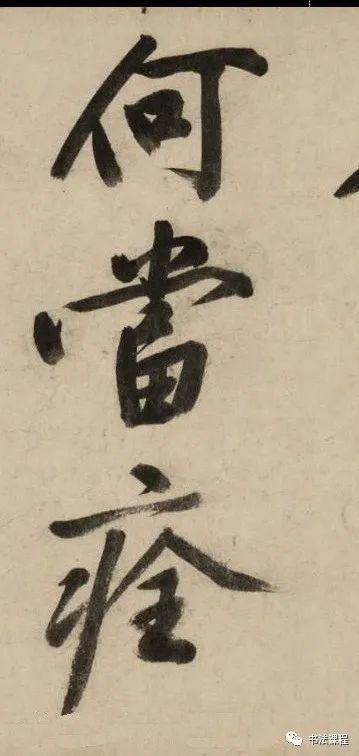 何當痊
书法课程